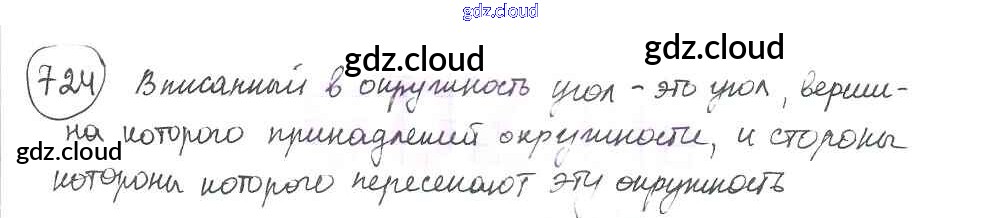 gdz.cloud
724 Вписанный в окружность угол - это угол, верши-
на которого принадлежит окружности, и стороны
которони которого пересекают эту окружность
gdz.cloud
gdz.cloud
gdz.cloud